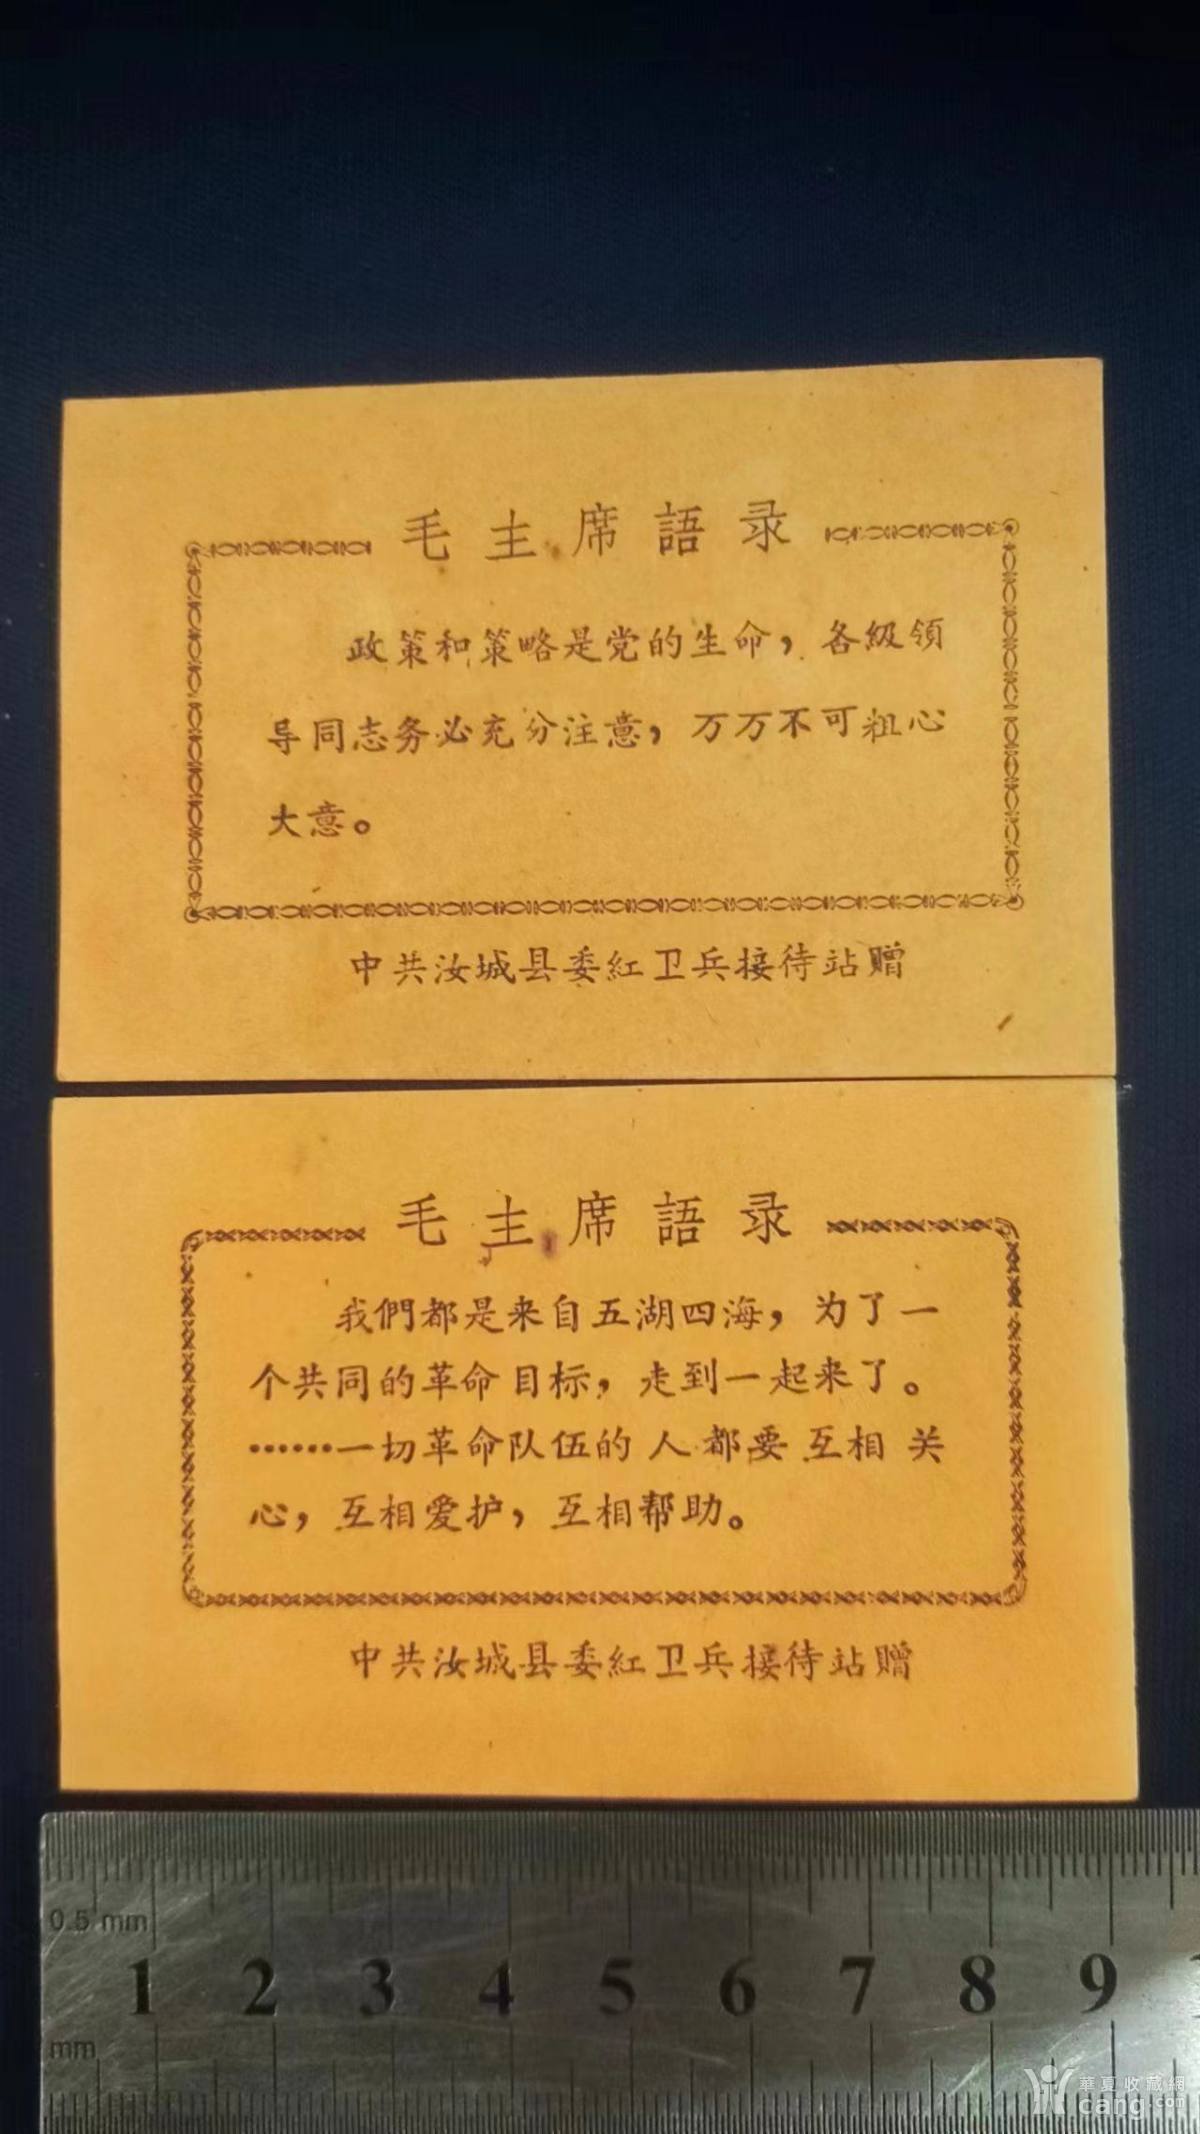 毛主席語录
政策和策略是党的生命，各級領
导同志务必充分注意，万万不可粗心
大意。
中共汝城县委紅卫兵接待站贈
毛主席語录
我們都是来自五湖四海，为了一
个共同的革命目标，走到一起来了。
……一切革命队伍的人都要互相关
心，互相爱护，互相帮助。
中共汝城县委紅卫兵接待站贈
0.5 mm
1 2 3 4 5 6 7 8 9
mm
華夏收藏網
cang.com